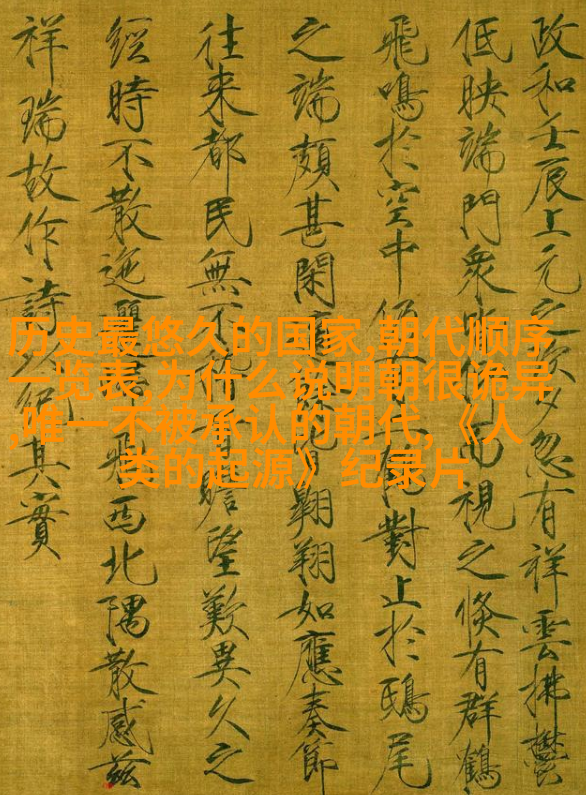 历史最悠久的国家,朝代顺序
一览表,为什么说明朝很诡异
,唯一不被承认的朝代,《人
类的起源》纪录片
政和壬辰上元之夕忽有祥雲拂鬱
低映端門衆而視之倏有群鶴
飛鳴於空中對止於鴟尾
之端頗甚閑翱翔如應奏節
往來都民無不瞻望歎異久之
經時不散迤飛西北隅散感茲
祥瑞故作詩以紀其實